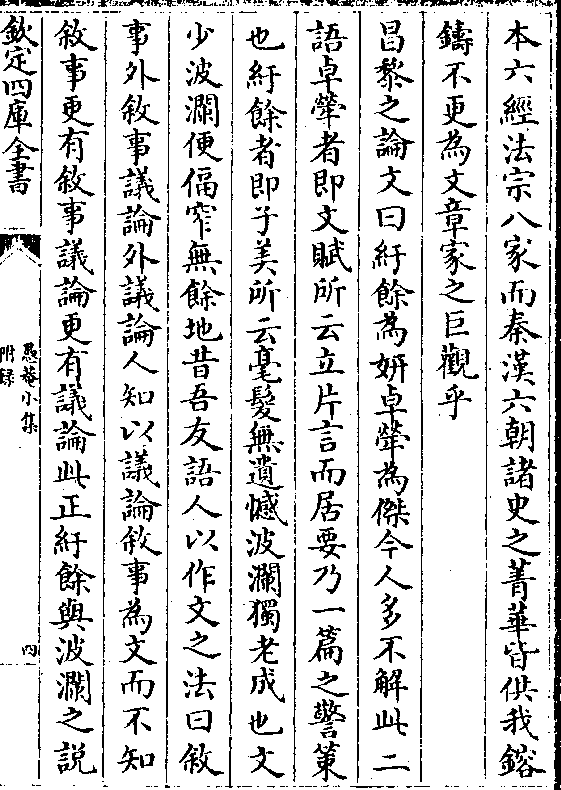 本六經法宗八家而秦漢六朝諸史之菁華皆供我鎔
鑄不更為文章家之巨觀乎
昌黎之論文曰紆餘為妍卓犖為傑今人多不解此二
語卓犖者即文賦所云立片言而居要乃一篇之警策
也紆餘者即子美所云毫髮無遺憾波瀾獨老成也文
少波瀾便偪窄無餘地昔吾友語人以作文之法曰敘
事外敘事議論外議論人知以議論敘事為文而不知
敘事更有敘事議論更有議論此正紆餘與波瀾之説
欽定四庫全書
愚菴小集
附録
四